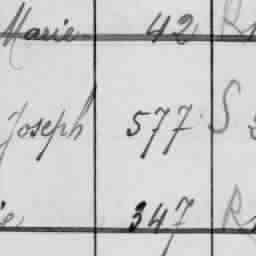 Marie 42 R
Joseph 577 S
e 347 R